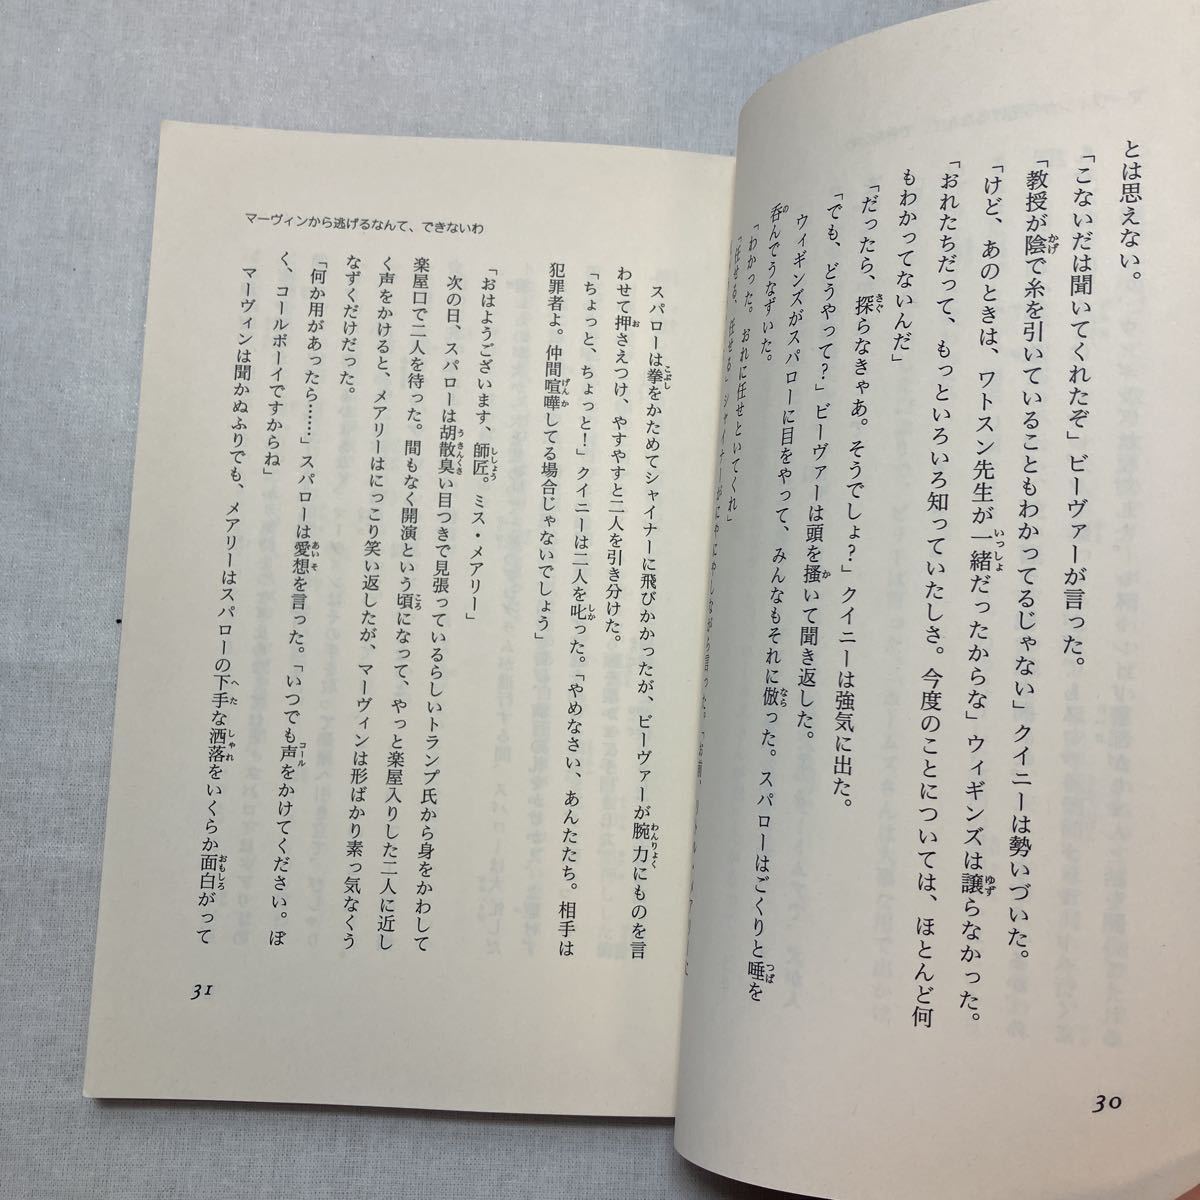 とは思えない。
「こないだは聞いてくれたぞ」ビーヴァーが言った。
「教授が陰で糸を引いていることもわかってるじゃない」クイニーは勢いづいた。
「けど、あのときは、ワトスン先生が一緒だったからな」ウィギンズは譲らなかった。
「おれたちだって、もっといろいろ知っていたしさ。今度のことについては、ほとんど何
もわかってないんだ」
「だったら、探らなきゃあ。そうでしょ？」クイニーは強気に出た。
「でも、どうやって？」ビーヴァーは頭を掻いて聞き返した。
ウィギンズがスパローに目をやって、みんなもそれに倣った。スパローはごくりと唾を
呑んでうなずいた。
「わかった。おれに任せといてくれ」
「任せる、任せる」シャイナーがにやにやしながら言った。「お前、
30
マーヴィンから逃げるなんて、できないわ
スパローは拳をかためてシャイナーに飛びかかったが、ビーヴァーが腕力にものを言
わせて押さえつけ、やすやすと二人を引き分けた。
「ちょっと、ちょっと！」クイニーは二人を叱った。「やめなさい、あんたたち。相手は
犯罪者よ。仲間喧嘩してる場合じゃないでしょう」
「おはようございます、師匠。ミス・メアリー」
次の日、スパローは胡散臭い目つきで見張っているらしいトランプ氏から身をかわして
楽屋口で二人を待った。間もなく開演という頃になって、やっと楽屋入りした二人に近し
く声をかけると、メアリーはにっこり笑い返したが、マーヴィンは形ばかり素っ気なくう
なずくだけだった。
「何か用があったら……」スパローは愛想を言った。「いつでも声をかけてください。ぼ
く、コールボーイですからね」
マーヴィンは聞かぬふりでも、メアリーはスパローの下手な洒落をいくらか面白がって
31